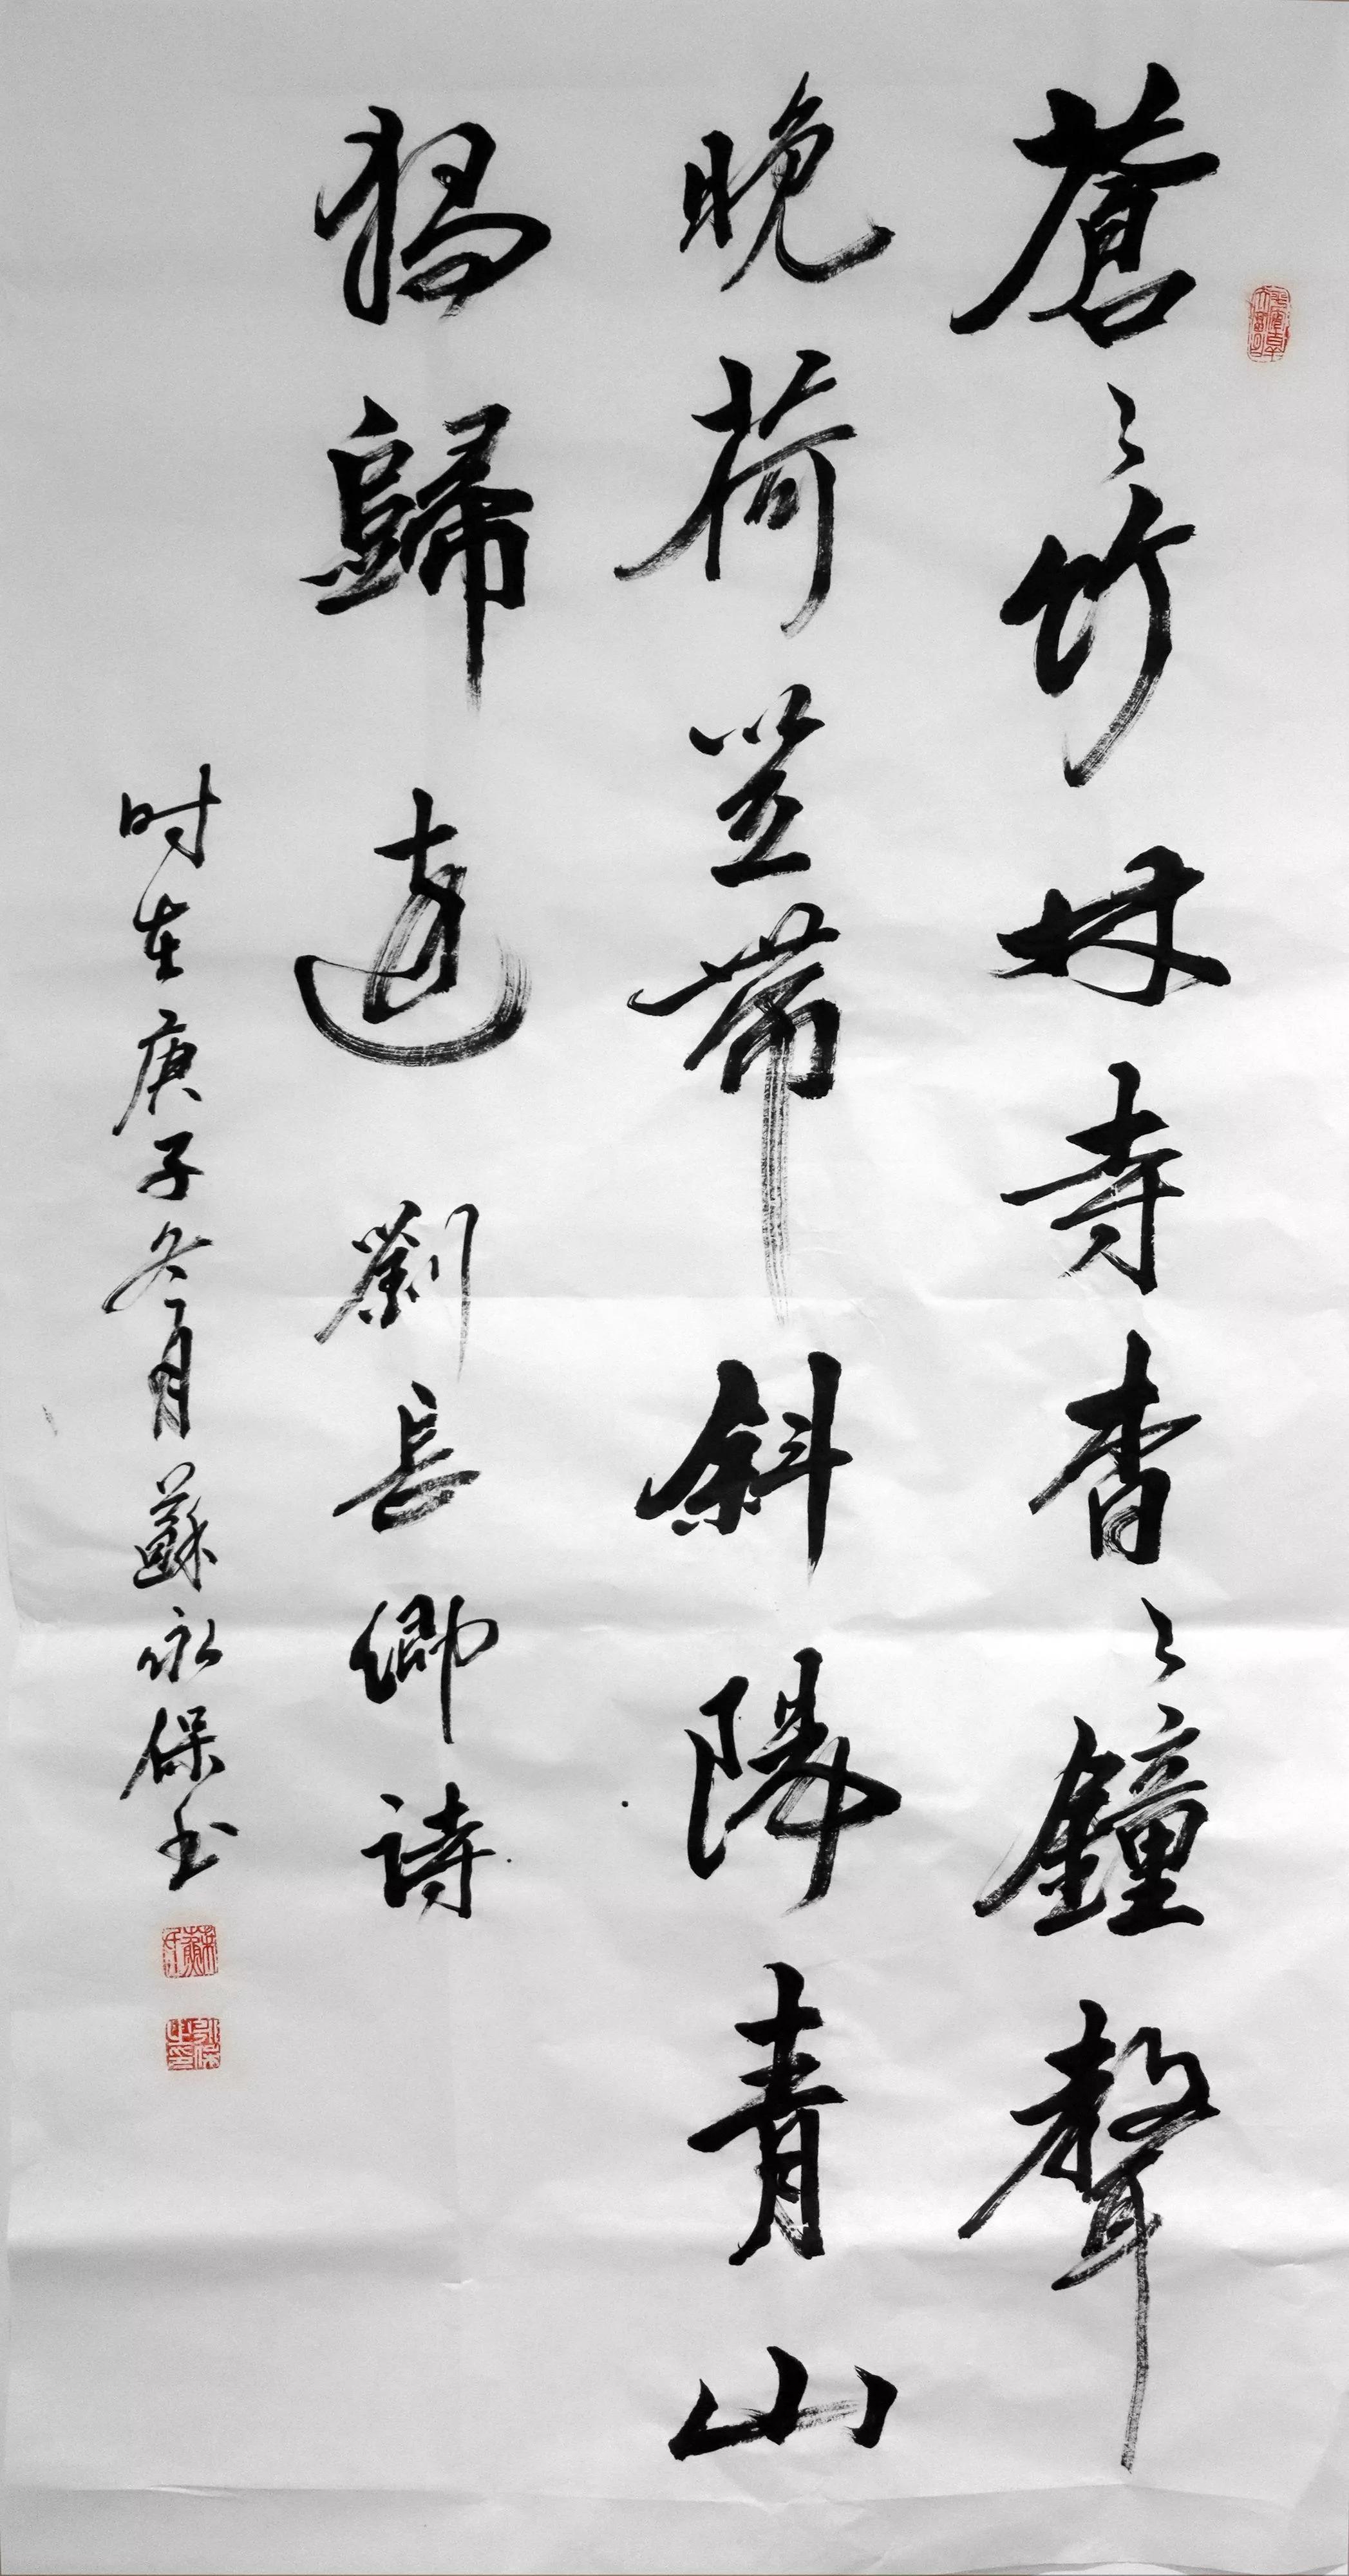 蒼々竹林寺杳々鐘聲
晚荷笠帶斜陽青山
獨歸遠 劉長卿詩
时在庚子冬月蘇永保书
永保之印